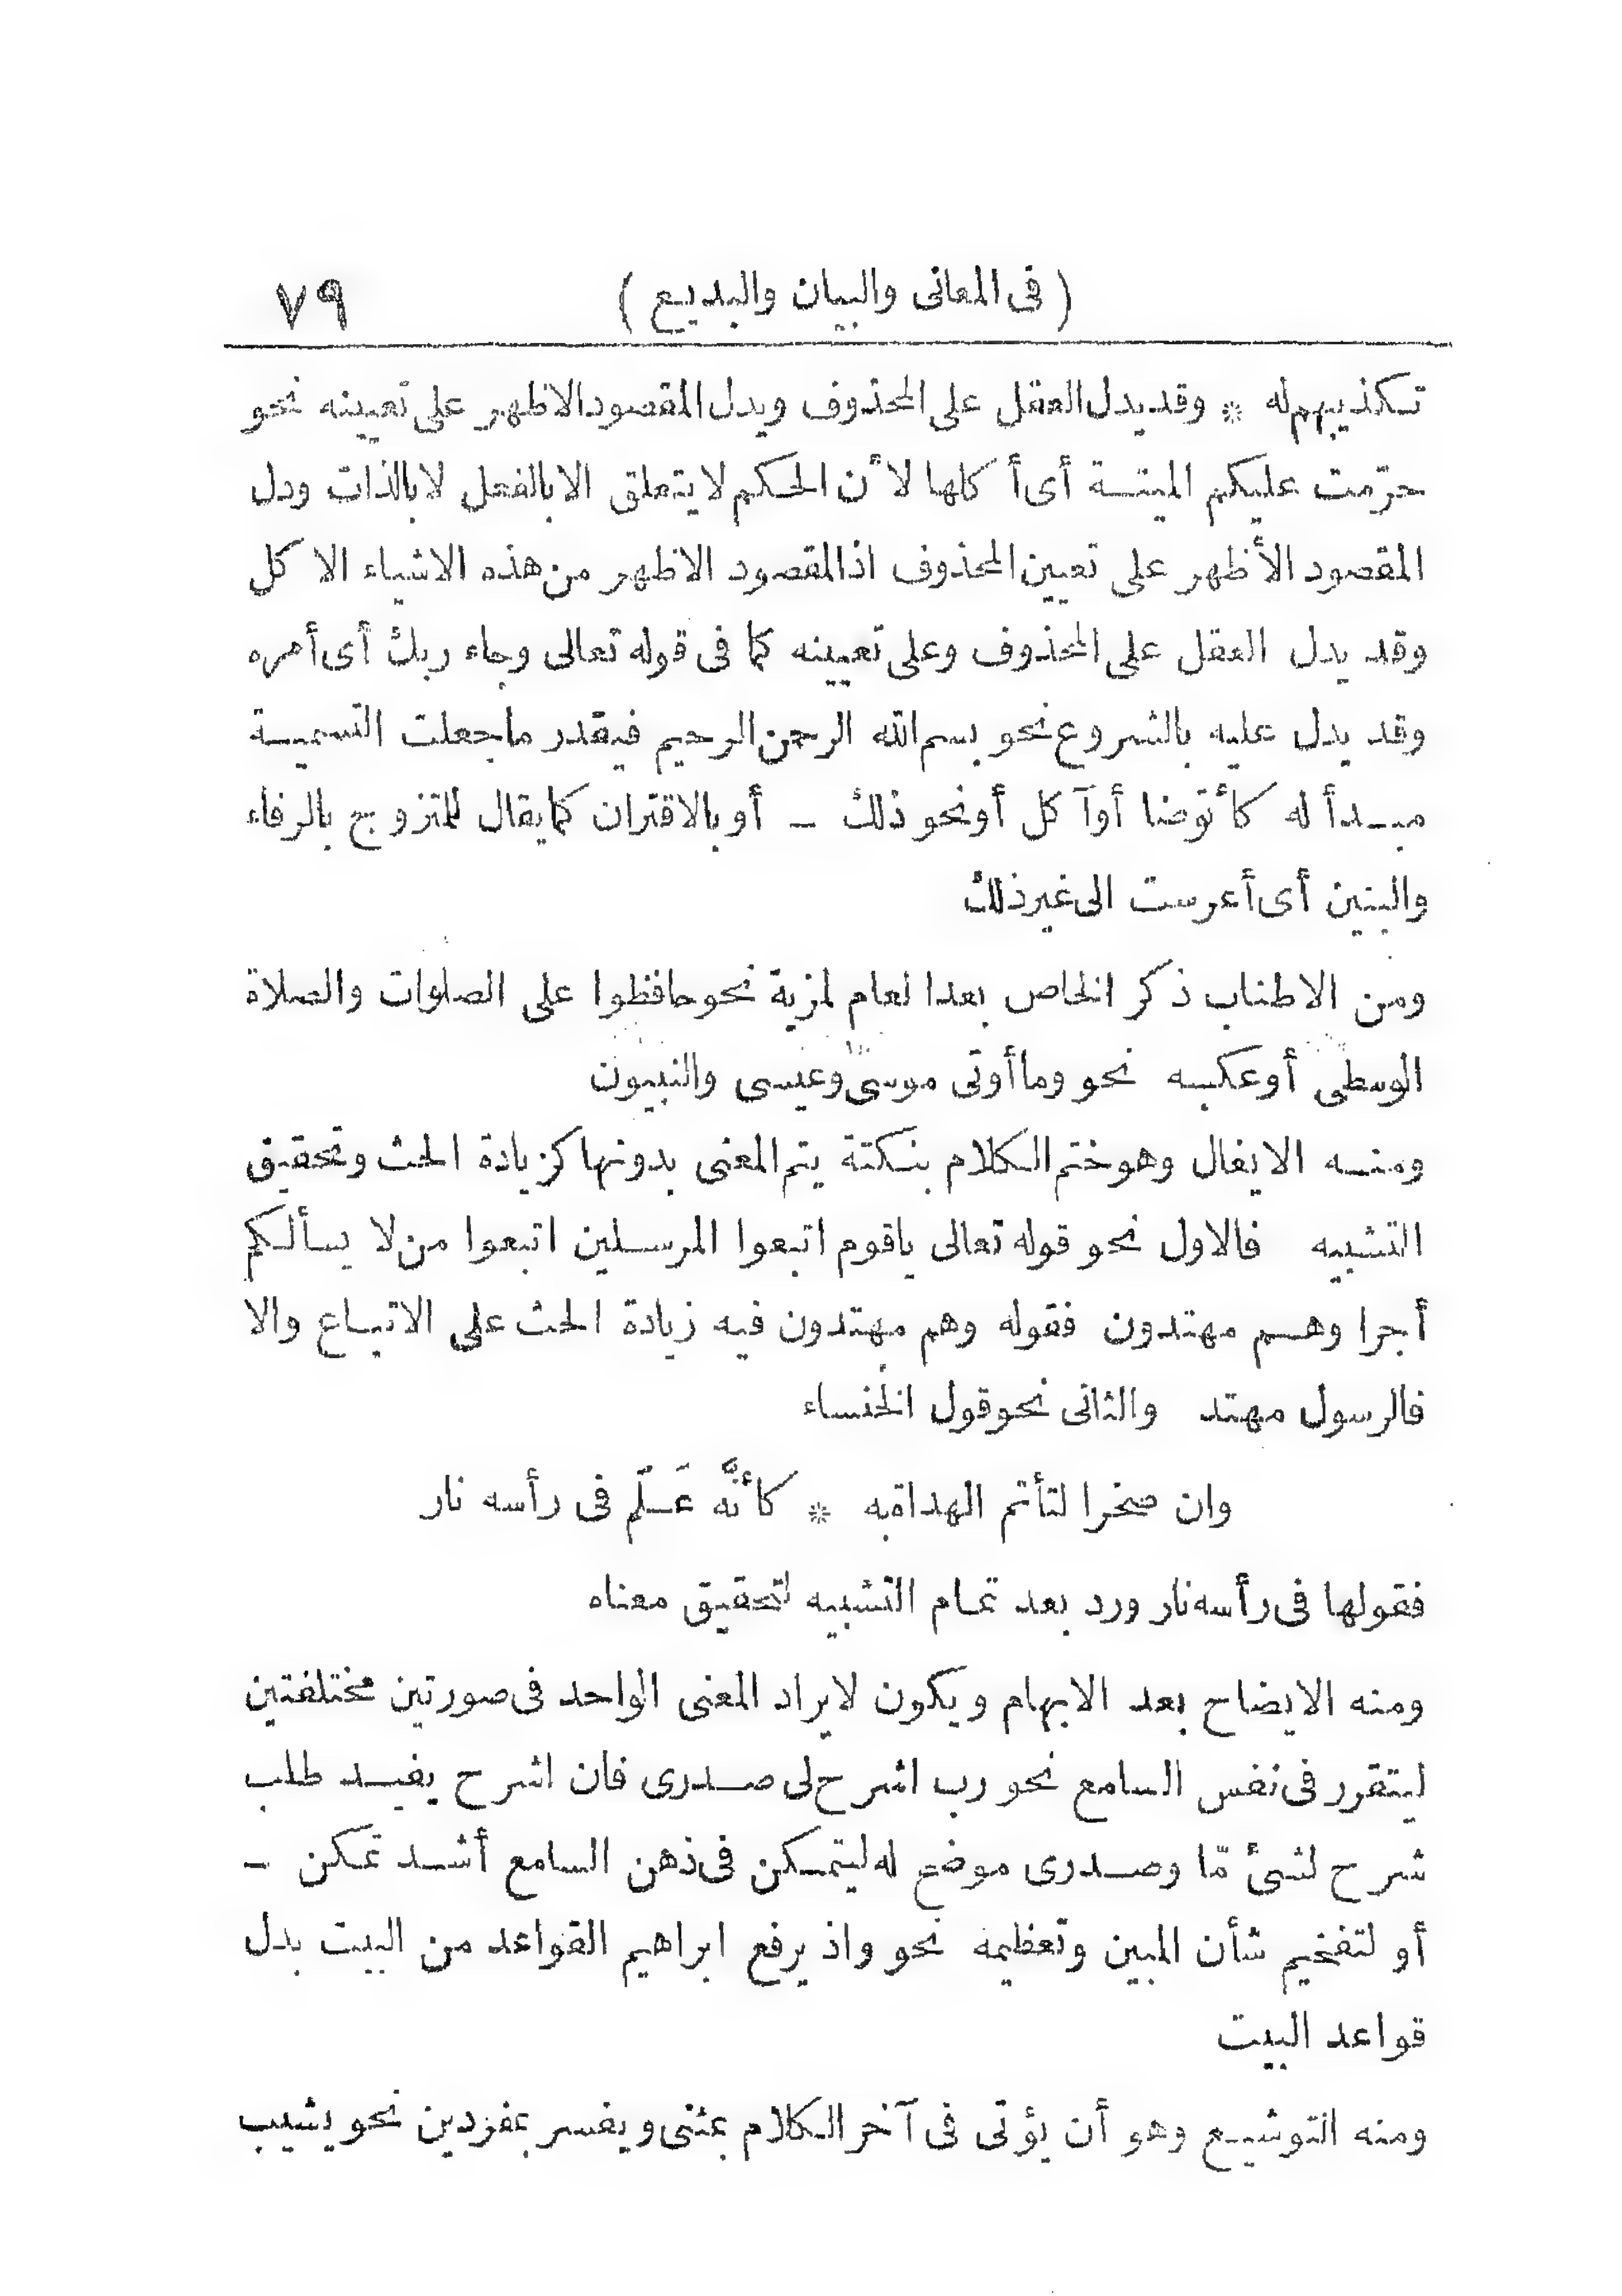 ( فى المعانى والبيان والبديع ) ٧٩
تكذيبهم له * وقد يدل العقل على المحذوف ويدل المقصود الاظهر على تعيينه نحو
حرّمت عليكم الميتة أى أكلها لأن الحكم لا يتعلق الا بالفعل لا بالذات ودل
المقصود الأظهر على تعيين المحذوف اذ المقصود الاظهر من هذه الاشياء الاكل
وقد يدل العقل على المحذوف وعلى تعيينه كما فى قوله تعالى وجاء ربك أى أمره
وقد يدل عليه بالشروع نحو بسم الله الرحمن الرحيم فيقدر ما جعلت التسمية
مبدأ له كأتوضا أو آكل أو نحو ذلك ــ أو بالاقتران كما يقال للمتزوج بالرفاء
والبنين أى أعرست الى غير ذلك
ومن الاطناب ذكر الخاص بعد العام لمزية نحو حافظوا على الصلوات والصلاة
الوسطى أو عكسه نحو وما أوتى موسى وعيسى والنبيون
ومنه الايغال وهو ختم الكلام بنكتة يتم المعنى بدونها كزيادة الحث وتحقيق
التشبيه فالاول نحو قوله تعالى ياقوم اتبعوا المرسلين اتبعوا من لا يسألكم
أجرا وهم مهتدون فقوله وهم مهتدون فيه زيادة الحث على الاتباع والا
فالرسول مهتد والثانى نحو قول الخنساء
وان صخرا لتأتم الهداة به * كأنَّه عَلَم فى رأسه نار
فقولها فى رأسه نار ورد بعد تمام التشبيه لتحقيق معناه
ومنه الايضاح بعد الابهام ويكون لايراد المعنى الواحد فى صورتين مختلفتين
ليتقرر فى نفس السامع نحو رب اشرح لى صدرى فان اشرح يفيد طلب
شرح لشئ مّا وصدرى موضع له ليتمكن فى ذهن السامع أشد تمكن ــ
أو لتفخيم شأن المبين وتعظيمه نحو واذ يرفع ابراهيم القواعد من البيت بدل
قواعد البيت
ومنه التوشيع وهو أن يؤتى فى آخر الكلام بمثنى ويفسر بمفردين نحو يشيب